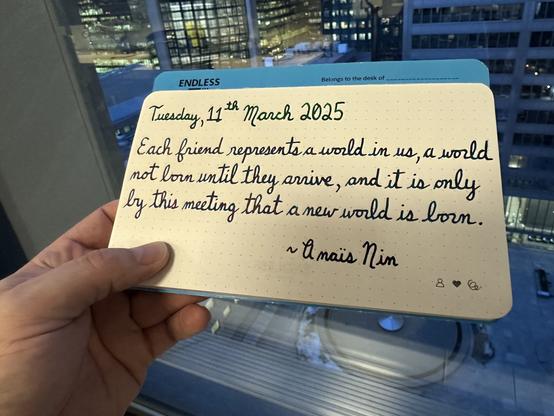 ENDLESS
Belongs to the desk of
Tuesday, 11th March 2025
Each friend represents a world in us, a world
not born until they arrive, and it is only
by this meeting that a new world is born.
~ Anaïs Nin